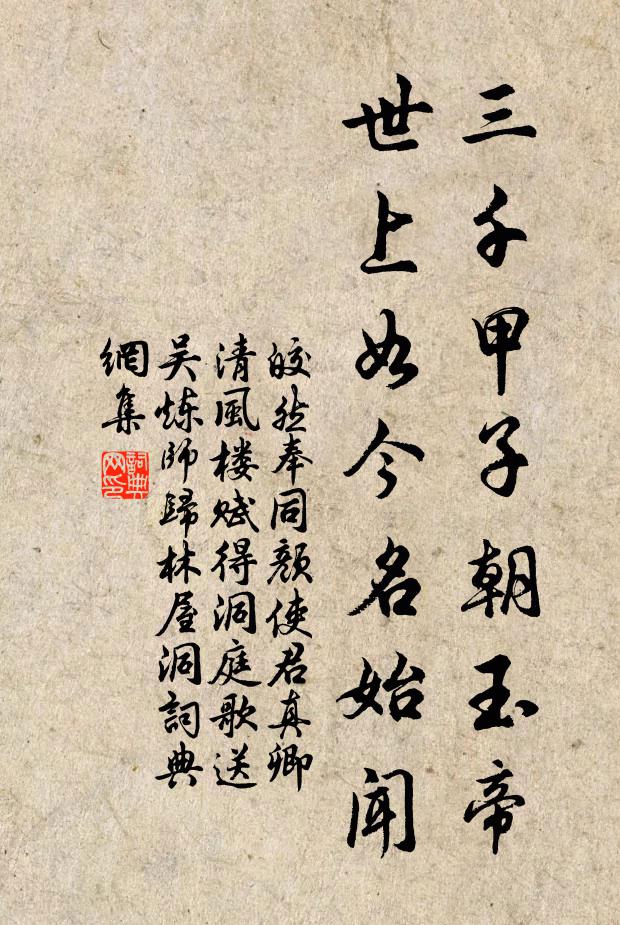 三千甲子朝玉帝
世上如今名始闻
皎然奉同颜使君真卿
清風楼赋得洞庭歌送
吴炼师歸林屋洞詞典
網集
詞典
网印